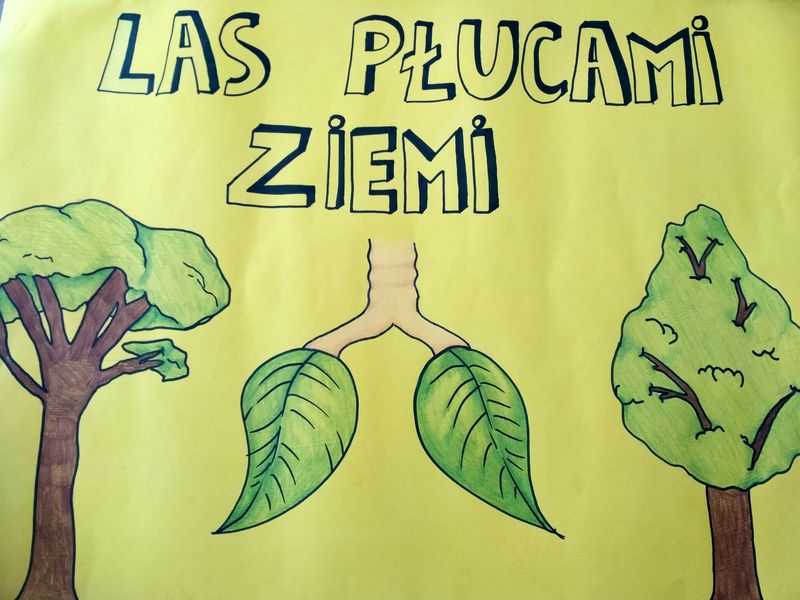 LAS PŁUCAMI
ZiEMi